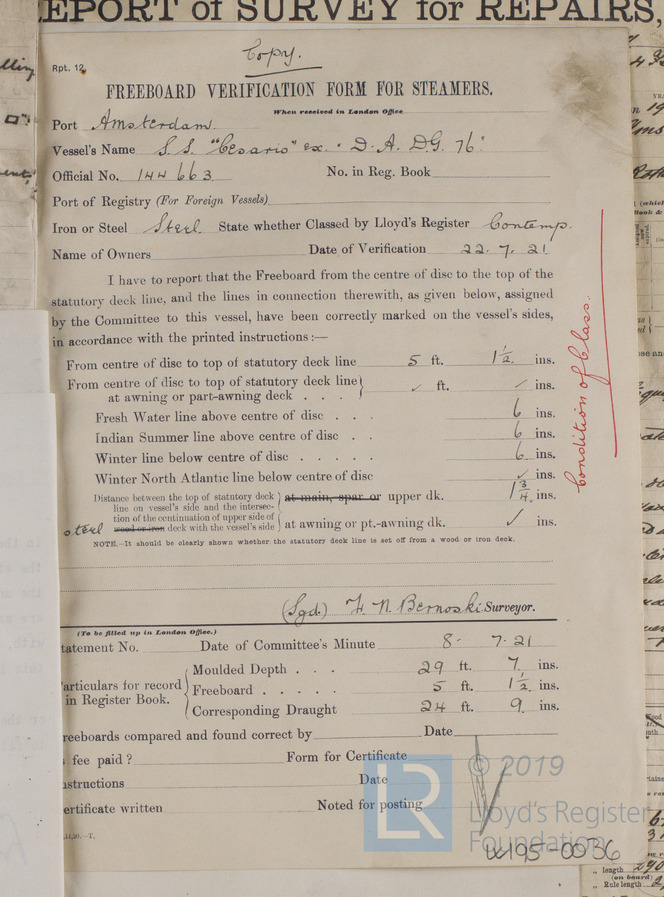 REPORT of SURVEY for REPAIRS,
Copy.
Rpt. 12.
FREEBOARD VERIFICATION FORM FOR STEAMERS.
When received in London Office
Port Amsterdam.
Vessel's Name S.S. "Cesario" ex. "D.A.D.G. 76"
Official No. 144663 No. in Reg. Book
Port of Registry (For Foreign Vessels)
Iron or Steel Steel State whether Classed by Lloyd's Register Contemp.
Name of Owners Date of Verification 22.7.21
I have to report that the Freeboard from the centre of disc to the top of the
statutory deck line, and the lines in connection therewith, as given below, assigned
by the Committee to this vessel, have been correctly marked on the vessel's sides,
in accordance with the printed instructions :—
From centre of disc to top of statutory deck line 5 ft. 1½ ins.
From centre of disc to top of statutory deck line
at awning or part-awning deck . . . ✓ ft. ✓ ins.
Fresh Water line above centre of disc . . . 6 ins.
Indian Summer line above centre of disc . . 6 ins.
Winter line below centre of disc . . . . . 6 ins.
Winter North Atlantic line below centre of disc ✓ ins.
Distance between the top of statutory deck
line on vessel's side and the intersec-
tion of the continuation of upper side of
steel wood or iron deck with the vessel's side
at main, spar or upper dk. 1¾ ins.
at awning or pt.-awning dk. ✓ ins.
NOTE.—It should be clearly shown whether the statutory deck line is set off from a wood or iron deck.
Condition of Class.
(Sgd.) H. N. Bernoski Surveyor.
(To be filled up in London Office.)
tatement No. Date of Committee's Minute 8. 7.21
articulars for record
in Register Book.
Moulded Depth . . . 29 ft. 7 ins.
Freeboard . . . . . 5 ft. 1½ ins.
Corresponding Draught 24 ft. 9 ins.
reeboards compared and found correct by Date
fee paid ? Form for Certificate
structions Date
ertificate written Noted for posting
LR
© 2019
Lloyd's Register
Foundation
W195-0036
length
(on board)
Rule length